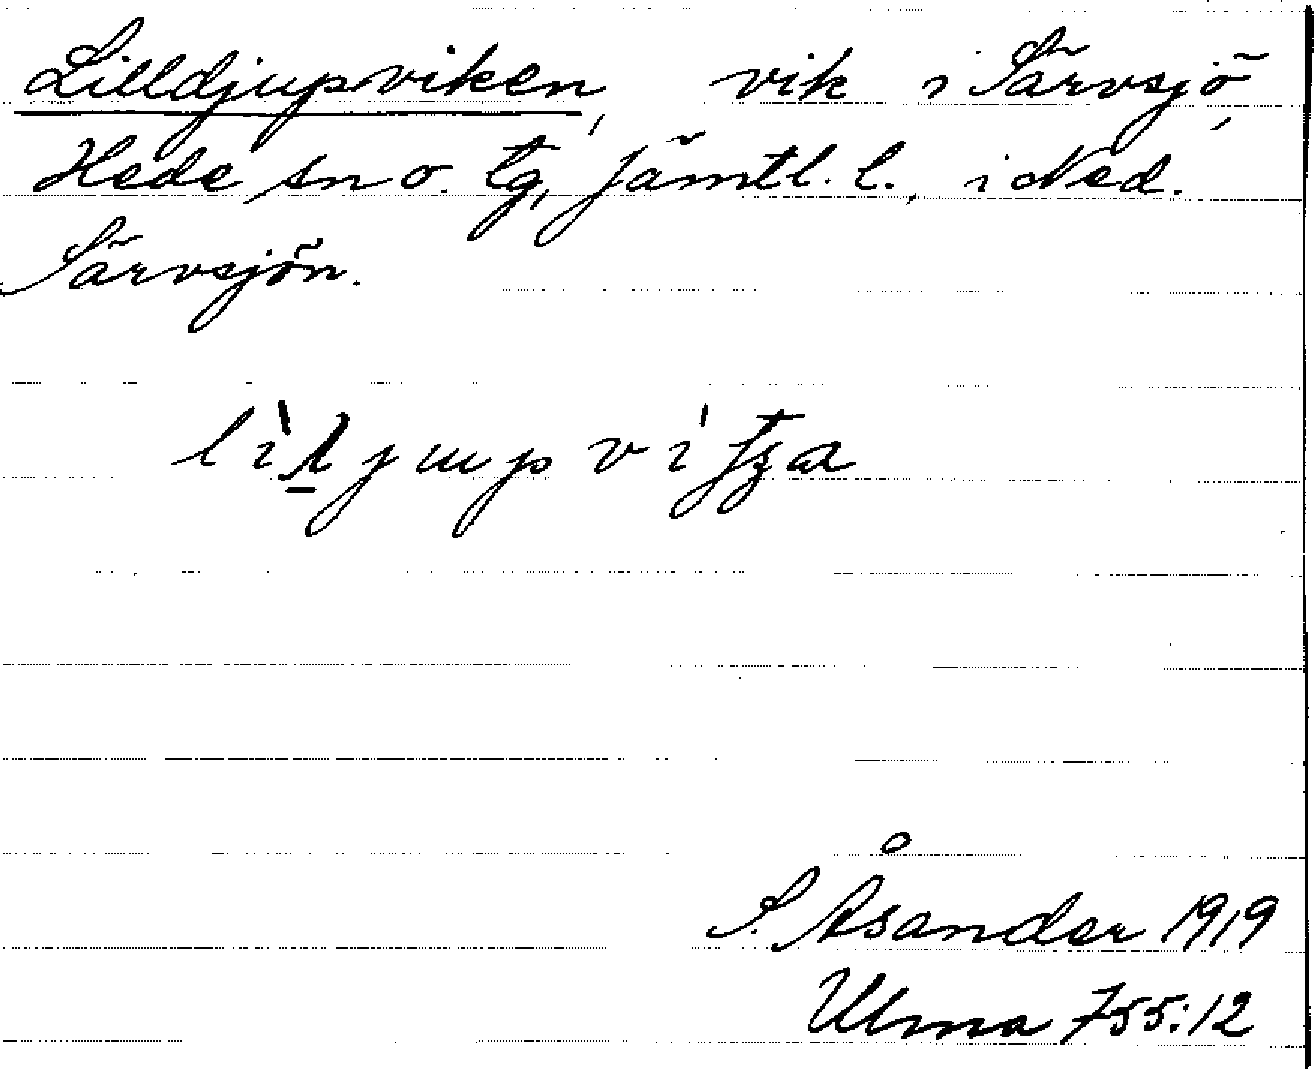 Lilldjupsviken, vik i Särvsjö,
Hede sn o. tg, Jämtl. l., i Ned.
Särvsjön.
S. Åsander 1919
Ulma 755:12